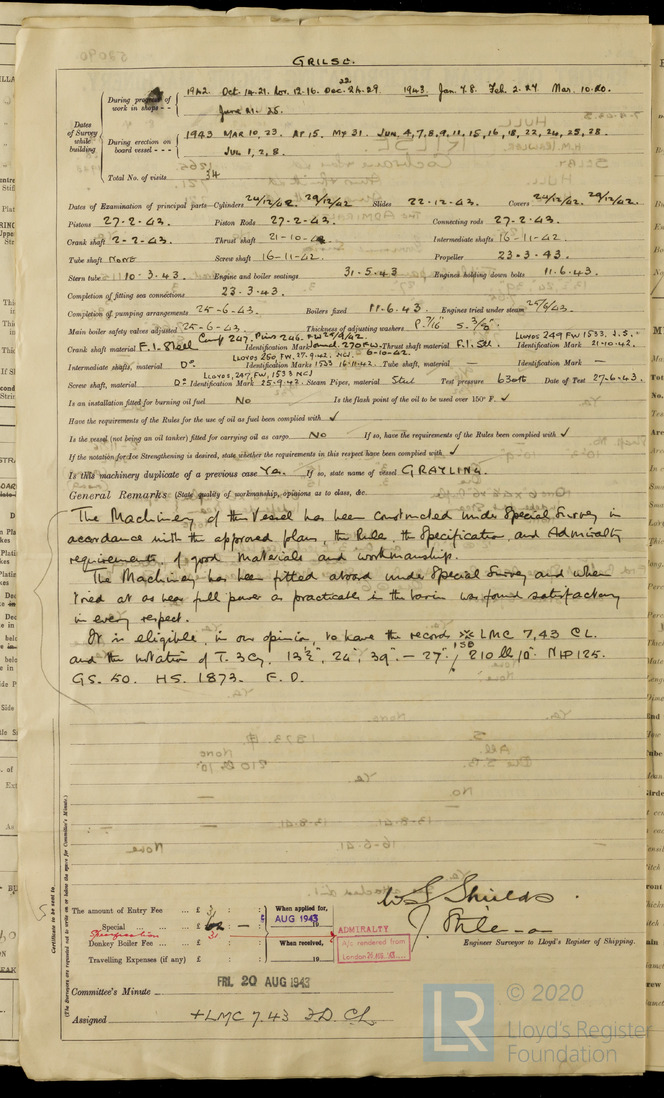 GRILSE.
Dates of Survey while building
During progress of work in shops - -
1942. Oct. 14. 21. Nov. 12. 16. Dec. 22. 24. 29 1943. Jan. 7. 8. Feb. 2. 27 Mar. 10. 20.
June 21. 25.
During erection on board vessel - - -
1943 MAR 10, 23. AP 15. MY 31. JUN, 4, 7, 8, 9, 11, 15, 16, 18, 22, 24, 25, 28.
JUL 1, 2, 8.
Total No. of visits 34
Dates of Examination of principal parts—Cylinders 24/12/42 29/12/42 Slides 22-12-43. Covers 24/12/42. 29/12/42.
Pistons 27-2-43. Piston Rods 27-2-43. Connecting rods 27-2-43.
Crank shaft 2-2-43. Thrust shaft 21-10-42. Intermediate shafts 16-11-42.
Tube shaft None Screw shaft 16-11-42 Propeller 23-3-43.
Stern tube 10-3-43. Engine and boiler seatings 31.5.43 Engines holding down bolts 11.6.43.
Completion of fitting sea connections 23-3-43.
Completion of pumping arrangements 25-6-43. Boilers fixed 11-6.43 Engines tried under steam 25/6/43.
Main boiler safety valves adjusted 25-6-43. Thickness of adjusting washers P. 7/16" S. 3/8".
Crank shaft material F.I. Steel Identification Mark Thrust shaft material F.I. Stl. Identification Mark LLOYDS 249 FW 1533, J.S. 21-10-42.
Intermediate shafts, material Do. Identification Marks LLOYDS 250, FW. 27.9.42. NCJ. 1533 16-11-42. Tube shaft, material — Identification Mark —
Screw shaft, material Do. Identification Mark LLOYDS, 247, FW, 1533 NCJ 25-9-42. Steam Pipes, material Steel Test pressure 630 lb Date of Test 27-6-43.
Is an installation fitted for burning oil fuel No Is the flash point of the oil to be used over 150° F. ✓
Have the requirements of the Rules for the use of oil as fuel been complied with ✓
Is the vessel (not being an oil tanker) fitted for carrying oil as cargo No If so, have the requirements of the Rules been complied with ✓
If the notation for Ice Strengthening is desired, state whether the requirements in this respect have been complied with ✓
Is this machinery duplicate of a previous case Yes. If so, state name of vessel GRAYLING.
General Remarks (State quality of workmanship, opinions as to class, &c.
The Machinery of this Vessel has been constructed under Special Survey in
accordance with the approved plans, the Rules, the Specification, and Admiralty
requirements, of good materials and workmanship.
The Machinery has been fitted aboard under Special Survey and when
tried at as near full power as practicable in the basin was found satisfactory
in every respect.
It is eligible, in our opinion, to have the record ※ LMC 7,43 CL.
and the notation of T. 3 Cy. 13½", 24", 39". — 27". 1SB 210 lb/□". NHP 125.
GS. 50. HS. 1873. F. D.
Certificate to be sent to
(The Surveyors are requested not to write on or below the space for Committee's Minute.)
The amount of Entry Fee ... £ : :
Special ... £ : —
Specification
Donkey Boiler Fee ... £ : :
Travelling Expenses (if any) £ : :
When applied for,
5 AUG 1943 19
When received,
19
ADMIRALTY
A/c rendered from
London
W. S. Shields.
Engineer Surveyor to Lloyd's Register of Shipping.
FRI. 20 AUG 1943
Committee's Minute
Assigned +LMC 7.43 F.D. CL.
LR
© 2020
Lloyd's Register
Foundation